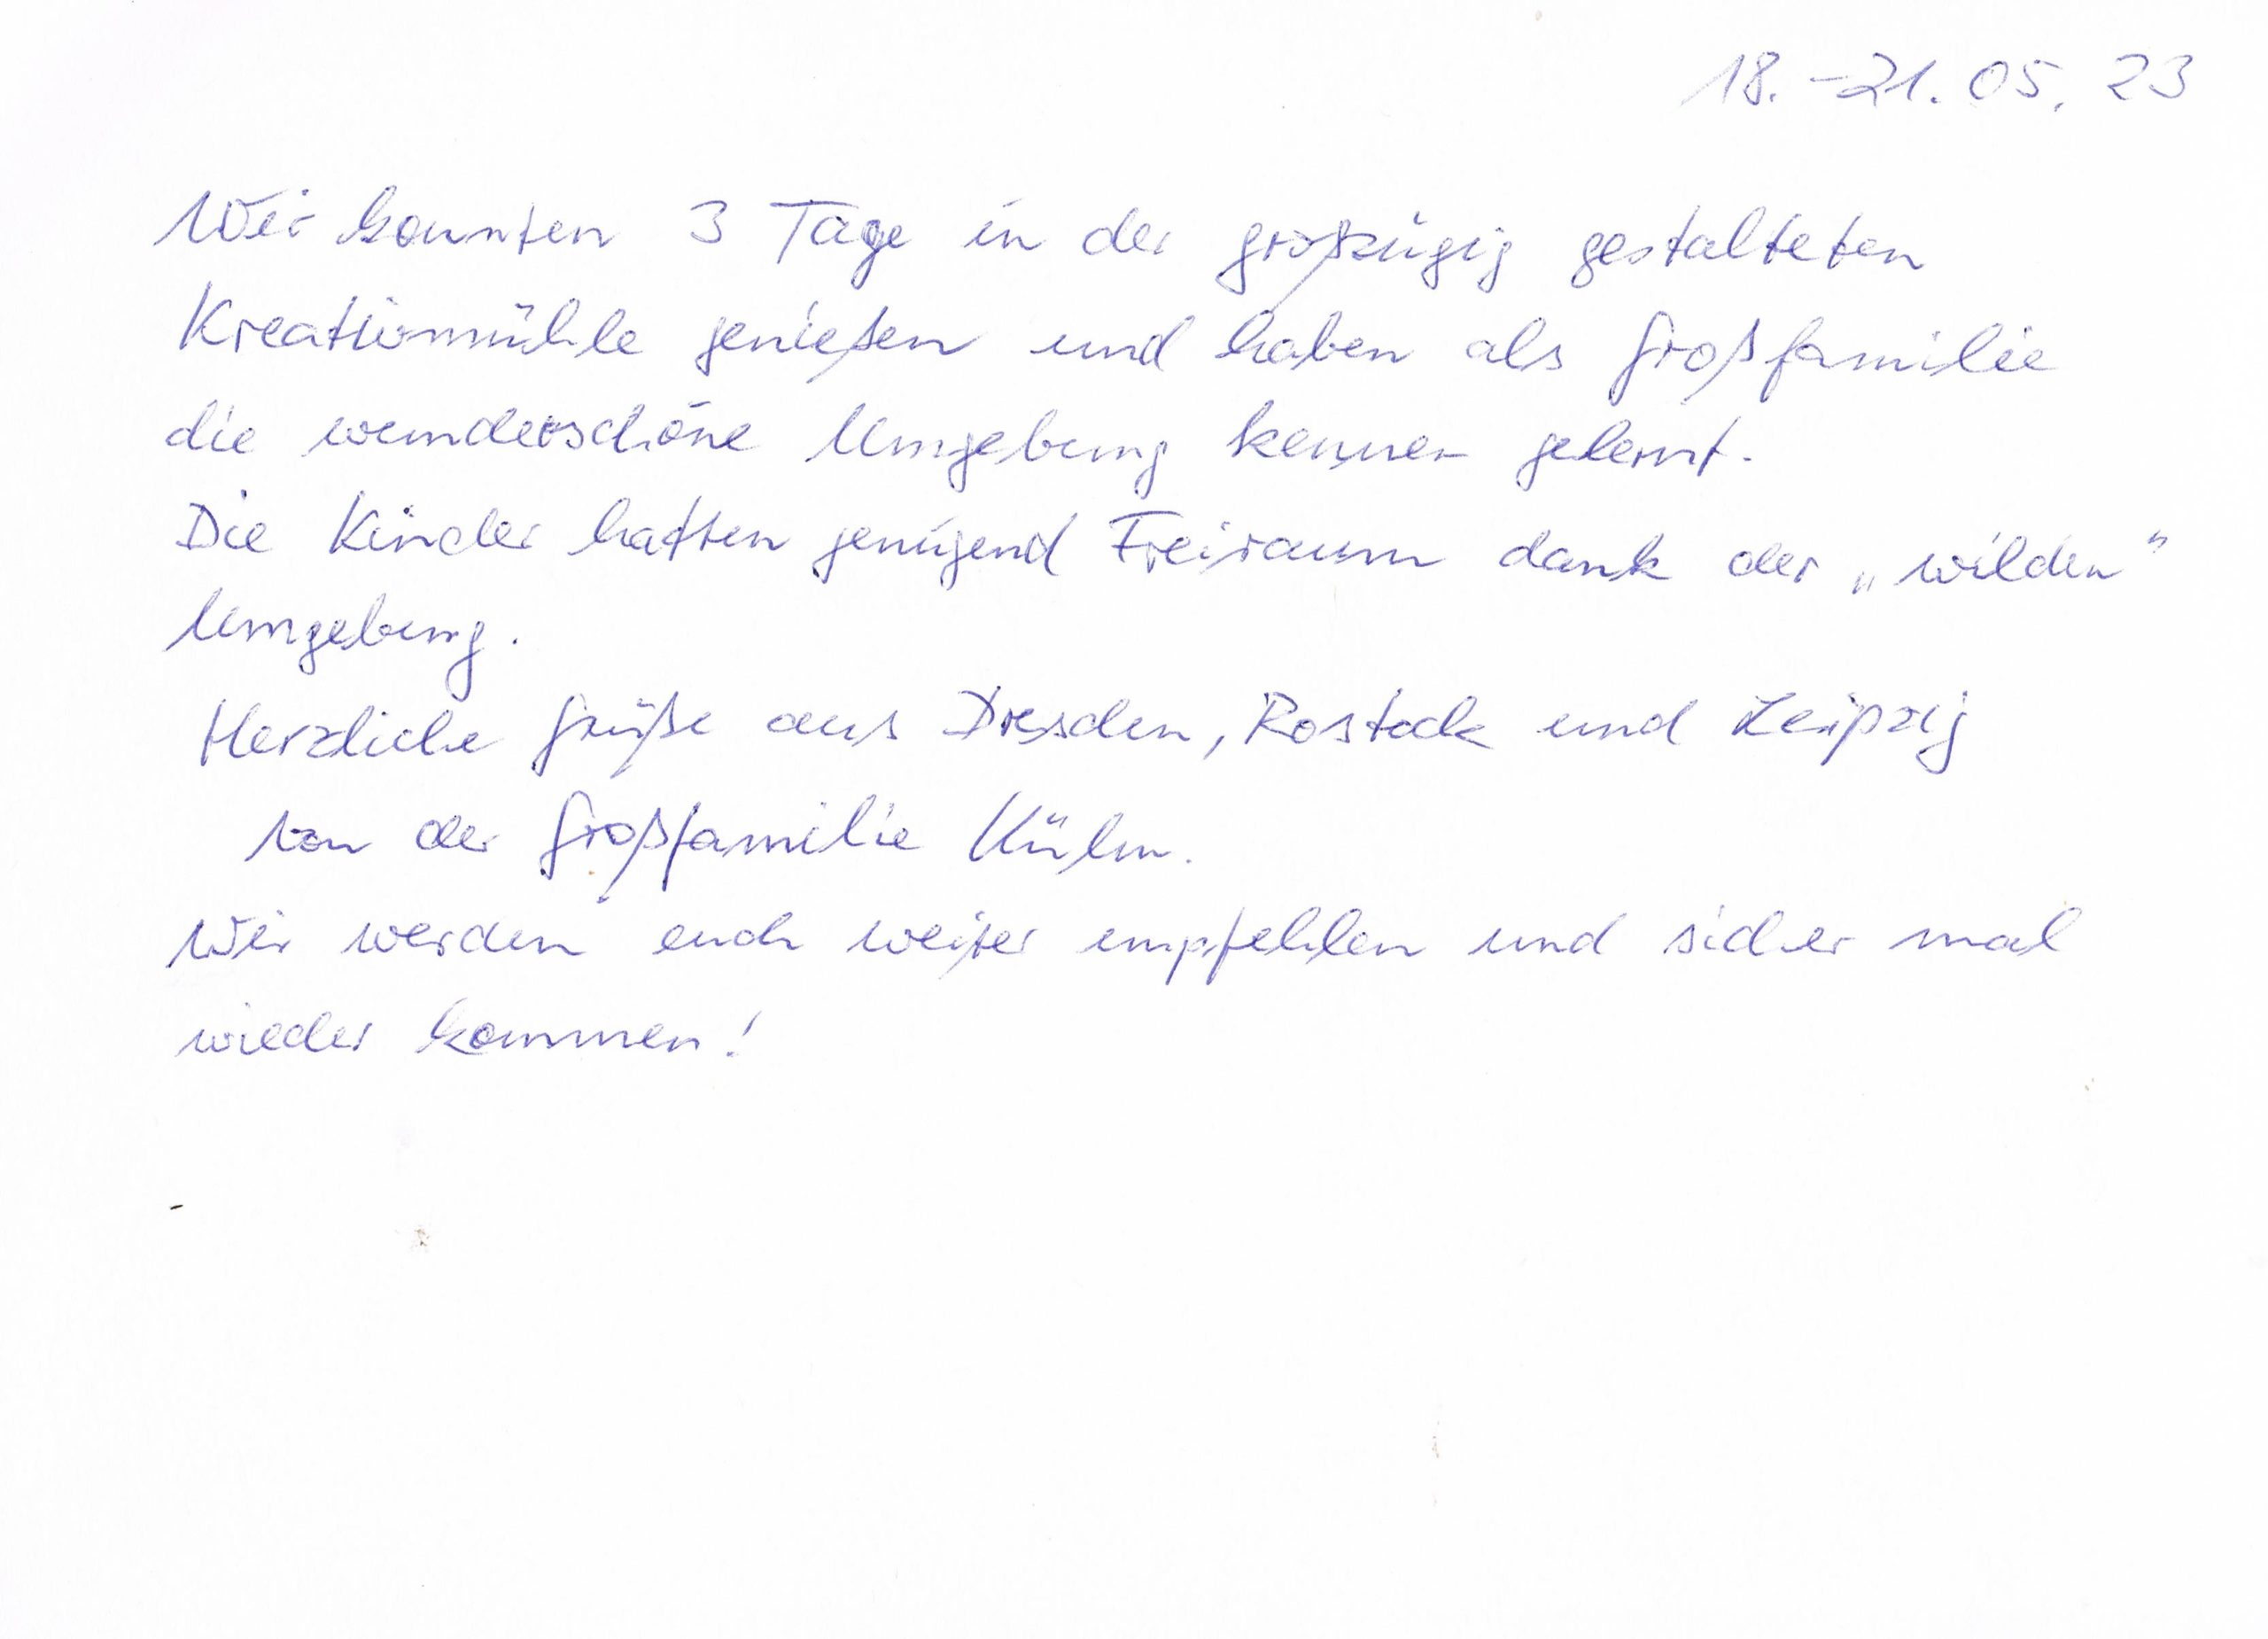 18.-21.05.23
Wir konnten 3 Tage in der großzügig gestalteten
Kreativmühle genießen und haben als Großfamilie
die wunderschöne Umgebung kennen gelernt.
Die Kinder hatten genügend Freiraum dank der „wilden“
Umgebung.
Herzliche Grüße aus Dresden, Rostock und Leipzig
von der Großfamilie
Wir werden euch weiter empfehlen und sicher mal
wieder kommen!